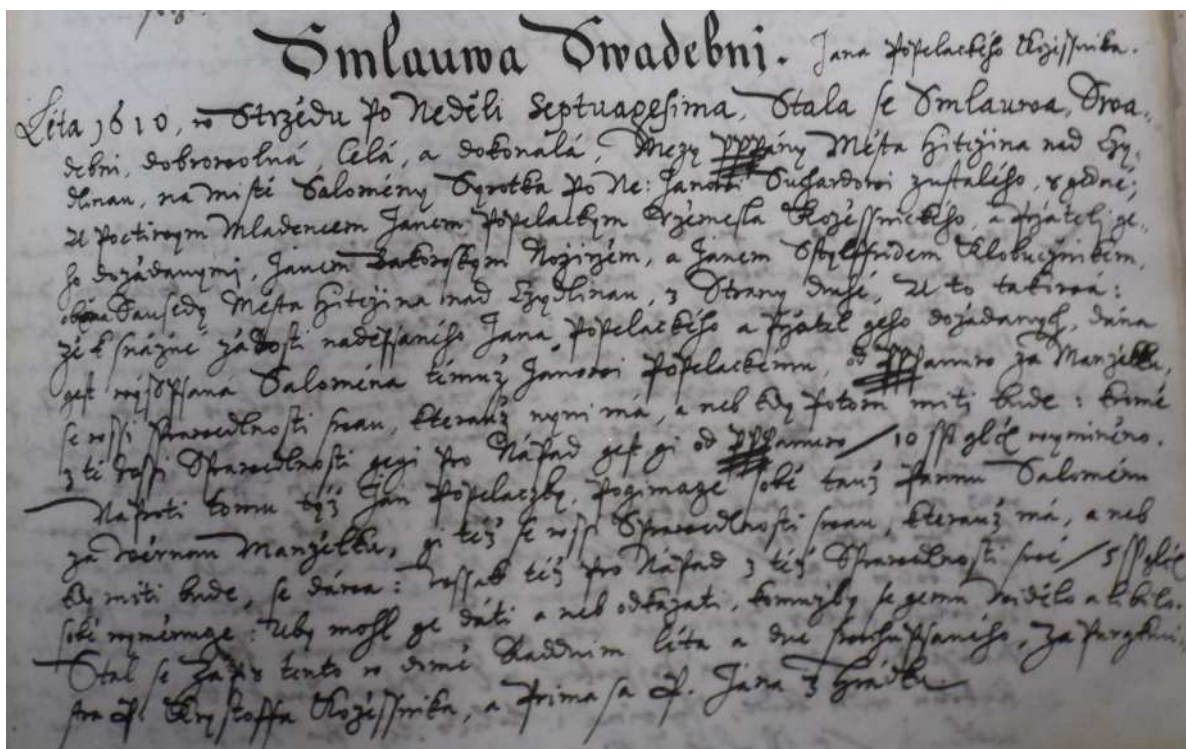 Smlauwa Swadebni. Jana Popelackého Kožissnika.
Léta 1610, w Strzédu po Neděli Septuagesima, Stala se Smlauwa, Swa-
debni, dobrowolná, celá, a dokonalá, Mezy Pány Města Hitčzina nad Czy-
dlinau, na místě Saloměny Syrotka po Ne: Janowi Suchardowi zustalého, z gedné;
A Poctiwym Mladencem Janem Popelackym Rzemesla Kožissnického, a přátelj ge-
ho dožádanymi, Janem Nožiržem, a Janem Klobucžnikem,
Sausedy Města Hitčzina nad Czydlinau, z Strany druhé, A to takowá:
že k snažné žádosti nadepsaného Jana Popelackého a přátel geho dožádanych, dána
gest wyss psana Saloména témuž Janowi Popelackemu, od Panuw za Manželku,
se wssi sprawedlnosti swau, kterauž nyni má, a neb kdy potom miti bude: kromě
z té wssi Sprawedlnosti gegi pro Nápad gest gi od Panuw / 10 ss gl čzes wyminěno.
Naproti tomu týž Jan Popelaczky, pogimage sobě tauž Pannu Saloménu
za wěrnau Manželku, gi též se wssi Sprawedlnosti swau, kterauž má, a neb
kdy miti bude, se dáwa: wssak též pro Nápad z též Sprawedlnosti swé / 5 ss gl čzes
sobě wyměnuge: Aby mohl ge dáti a neb odkázati, komužby se gemu widělo a libilo.
Stal se Zápis tento w domě Raddnim léta a dne swrchu psaného, za Purgkmi-
stra P. Krystoffa Kožissnika, a Primasa P. Jana z Hrádku